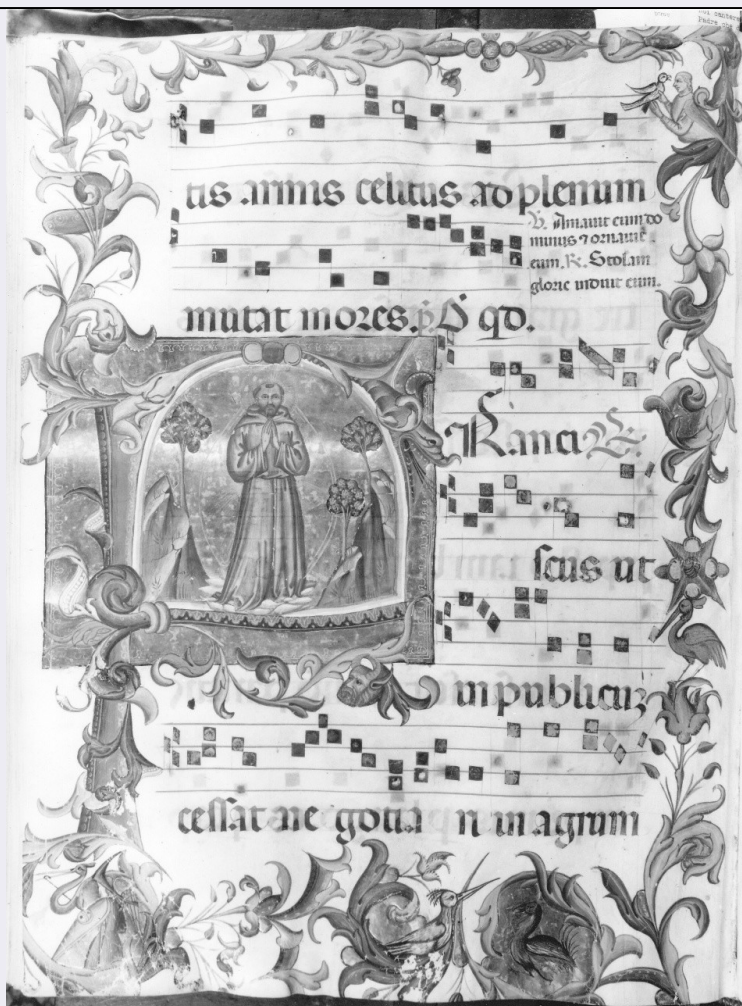 tis armis celitus ad plenum
V. Amauit eum do
minus ⁊ ornauit
eum. R. Stolam
glorie induit eum.
mutat mores. p̄ ꝟ qd.
Ranci
scus ut
in publicuꝫ
cessat are gotia n in agrum